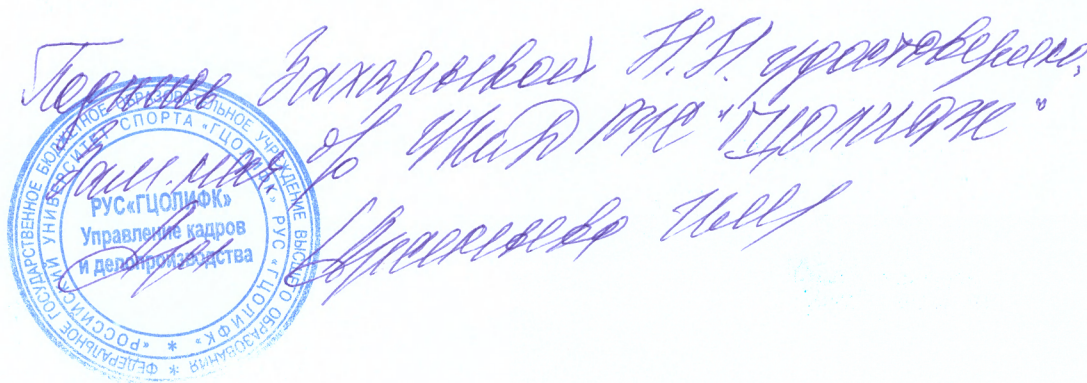 Подпись Захарьевой Н.Н. удостоверяю,
Зам. нач УКиД РУС "ГЦОЛИФК"
ФЕДЕРАЛЬНОЕ ГОСУДАРСТВЕННОЕ БЮДЖЕТНОЕ ОБРАЗОВАТЕЛЬНОЕ УЧРЕЖДЕНИЕ ВЫСШЕГО ОБРАЗОВАНИЯ *
«РОССИЙСКИЙ УНИВЕРСИТЕТ СПОРТА «ГЦОЛИФК» РУС «ГЦОЛИФК» *
РУС«ГЦОЛИФК»
Управление кадров
и делопроизводства